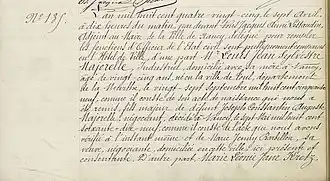 N° 135.
L'an mil huit cent quatre vingt-cinq, le sept Avril, à
dix heures du matin, par devant Nous Jacques
Adjoint au Maire de la Ville de Nancy, délégué pour remplir
les fonctions d'Officier de l'état civil sont publiquement
en l'Hôtel de Ville, d'une part M. Louis Jean Sylvestre
Majorelle, Industriel, domicilié avec sa mère à
âgé de vingt-cinq ans, né en la ville de Toul, département
de la Meurthe, le vingt-sept Septembre mil huit cent cinquante
neuf, comme il conste de son acte de naissance qui nous a
été remis, fils majeur de défunt Joseph Constantin Auguste
Majorelle, négociant, décédé à Nancy, le sept Mai mil huit cent
soixante-dix-neuf, comme il conste de l'acte que nous avons
vérifié à l'instant même et de Marie Jenny
veuve, négociante, domiciliée en cette Ville, ici présente et
consentante. D'autre part Marie Léonie Jane Kretz